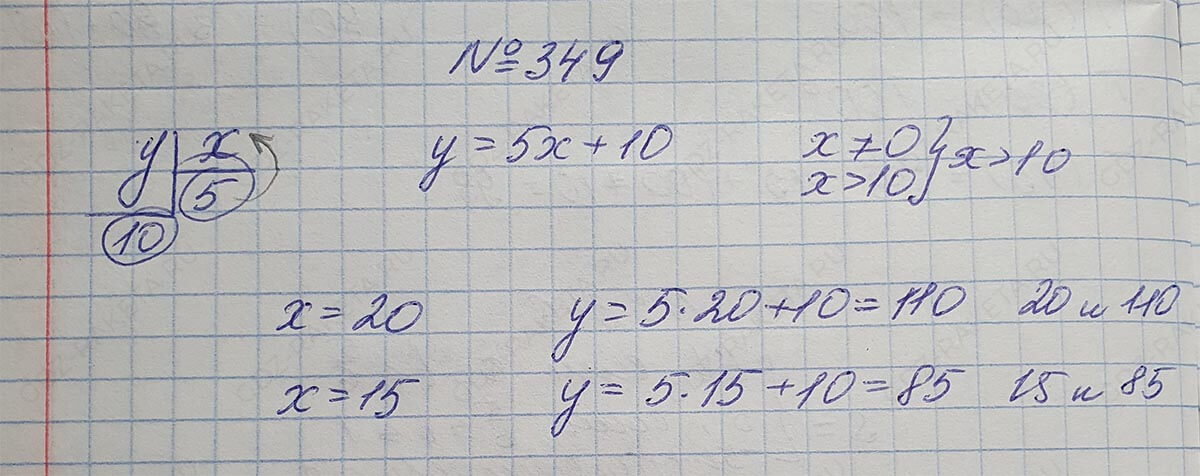 №349
y | x y = 5x + 10 x ≠ 0 } x > 10
5 x > 10
10
x = 20 y = 5·20 + 10 = 110 20 и 110
x = 15 y = 5·15 + 10 = 85 15 и 85